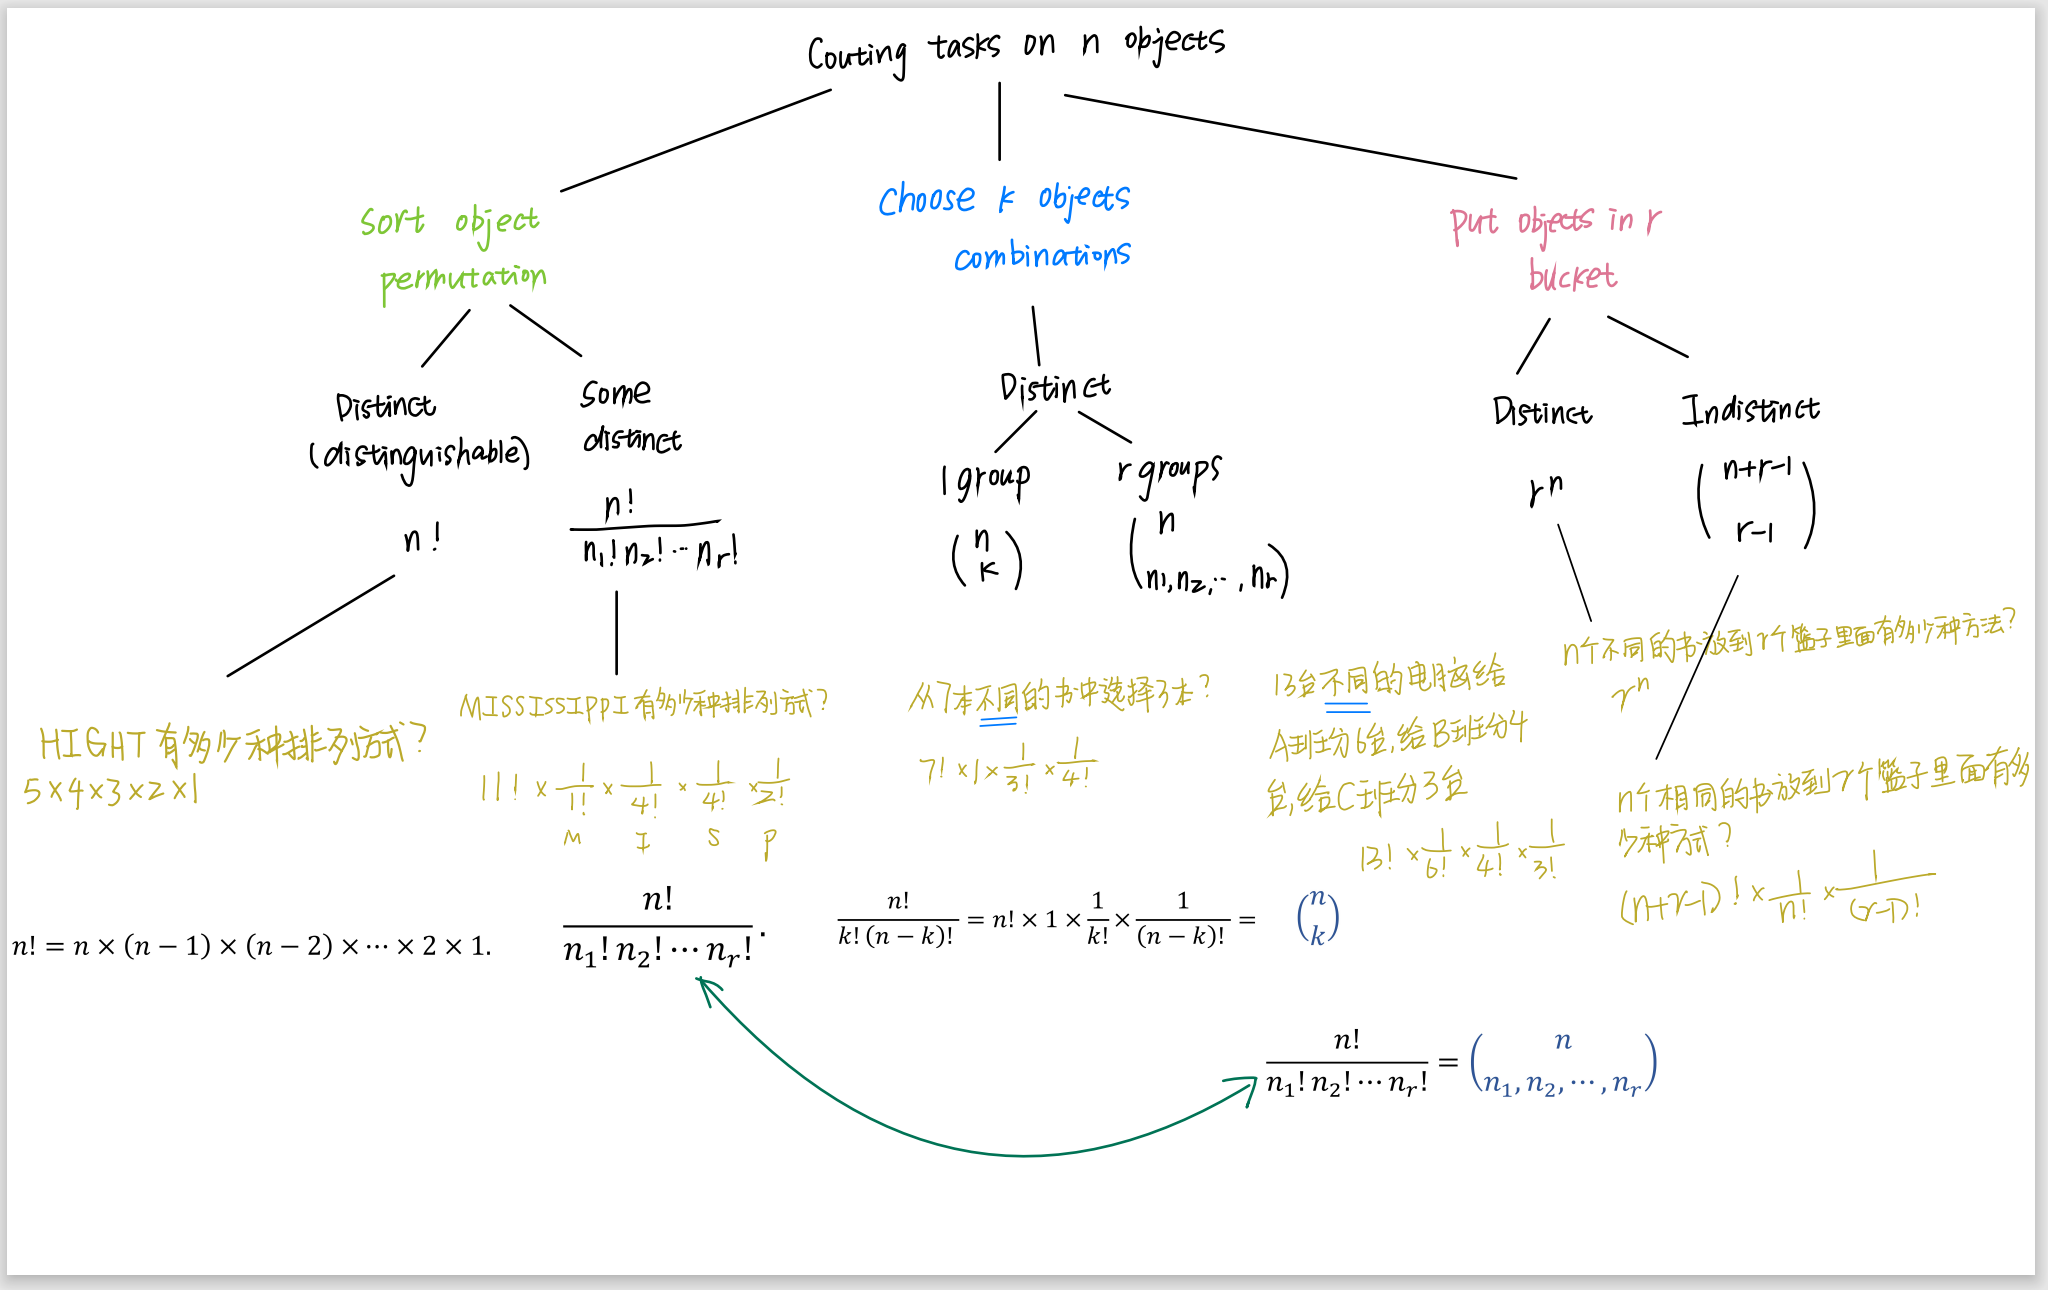 Couting tasks on n objects
Sort object
permutation
Choose k objects
combinations
put objects in r
bucket
Distinct
(distinguishable)
n!
Some
distinct
n!
n₁! n₂! ··· nᵣ!
Distinct
1 group
(n
k)
r groups
(n
n₁, n₂, ··· , nᵣ)
Distinct
rⁿ
Indistinct
(n+r-1
r-1)
HIGHT 有多少种排列方式?
5×4×3×2×1
MISSISSIPPI 有多少种排列方式?
11! × 1/1! × 1/4! × 1/4! × 1/2!
M I S P
从7本不同的书中选择3本?
7! × 1 × 1/3! × 1/4!
13台不同的电脑给
A班分6台,给B班分4
台,给C班分3台
13! × 1/6! × 1/4! × 1/3!
n个不同的书放到r个篮子里面有多少种方法?
rⁿ
n个相同的书放到r个篮子里面有多
少种方式?
(n+r-1)! × 1/n! × 1/(r-1)!
n! = n × (n − 1) × (n − 2) × ⋯ × 2 × 1.
n!
n₁! n₂! ⋯ nᵣ!.
n!/k! (n − k)! = n! × 1 × 1/k! × 1/(n − k)! = (n
k)
n!/n₁! n₂! ⋯ nᵣ! = (n
n₁, n₂, ⋯ , nᵣ)